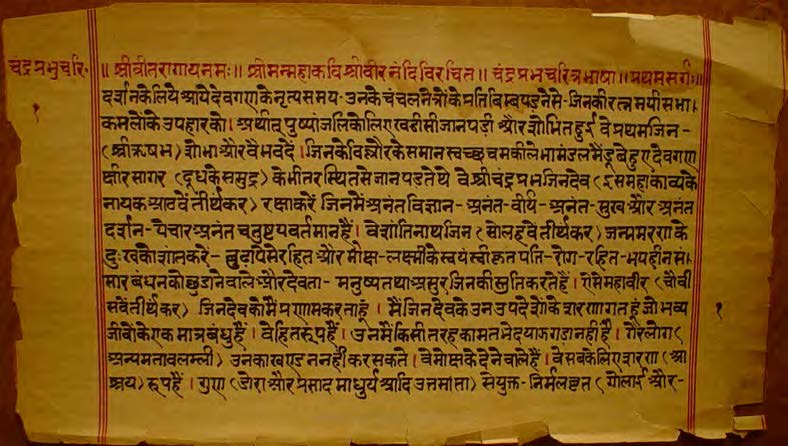 चंद्रप्रभुचरि॰
॥ श्रीवीतरागायनमः॥ श्रीमन्महाकवि श्रीवीरनंदिविरचित॥ चंद्रप्रभचरित्रभाषा॥ प्रथमसर्गः॥
दर्शनकेलिये आयेदेवगणाकेनृत्यसमय-उनकेचंचलनेत्रोंकेप्रतिबिम्बपड़नेसे-जिनकीरत्नमयीसभा।
कमलोंकेउपहारको। अर्थात् पुष्पांजलिकेलिएखडीसीजानपडी औरशोभितहुई वेप्रथमजिन-
(श्रीऋषभ) शोभाऔरवैभवदें। जिनकेबिल्लौरकेसमानस्वच्छचमकीलेभामंडलमेंडूबेहुएदेवगण
क्षीरसागर (दूधकेसमुद्र) केभीतरस्थितसेजानपड़तेथे वेश्रीचंद्रप्रभजिनदेव (इसमहाकाव्यके
नायकआठवेंतीर्थकर) रक्षाकरें जिनमेंअनंतविज्ञान-अनंत-वीर्य-अनंत-सुखऔरअनंत
दर्शन-येचारअनंतचतुष्टयवर्तमानहैं। वेशांतिनाथजिन (सोलहवेंतीर्थकर) जन्ममरणके
दुःखकोशांतकरें-बुढापेसेरहितऔरमोक्ष-लक्ष्मीकेस्वयंस्वीकृतपति-रोग-रहित-भयहीनस।
सारबंधनकोछुडानेवालेऔरदेवता-मनुष्यतथाअसुरजिनकीस्तुतिकरतेहैं। ऐसेमहावीर (चौवी
सवेंतीर्थकर) जिनदेवकोमैंप्रणामकरताहूं। मैंजिनदेवकेउनउपदेशोंकेशरणागतहूंजोभव्य
जीवोंकेएकमात्रबंधुहैं। वेहितरूपहैं। उनमेंकिसीतरहकामतभेदयाझगडानहींहै। गैरलोग(
अन्यमतावलम्बी) उनकाखण्डननहींकरसकते। वेमोक्षकेदेनेवालेहैं। वेसबकेलिएशरण (आ
श्रय) रूपहैं। गुण (डोराऔरप्रसादमाधुर्यआदिउत्तमता) सेयुक्त-निर्मलवृत्त (गोलाई और-
१
१